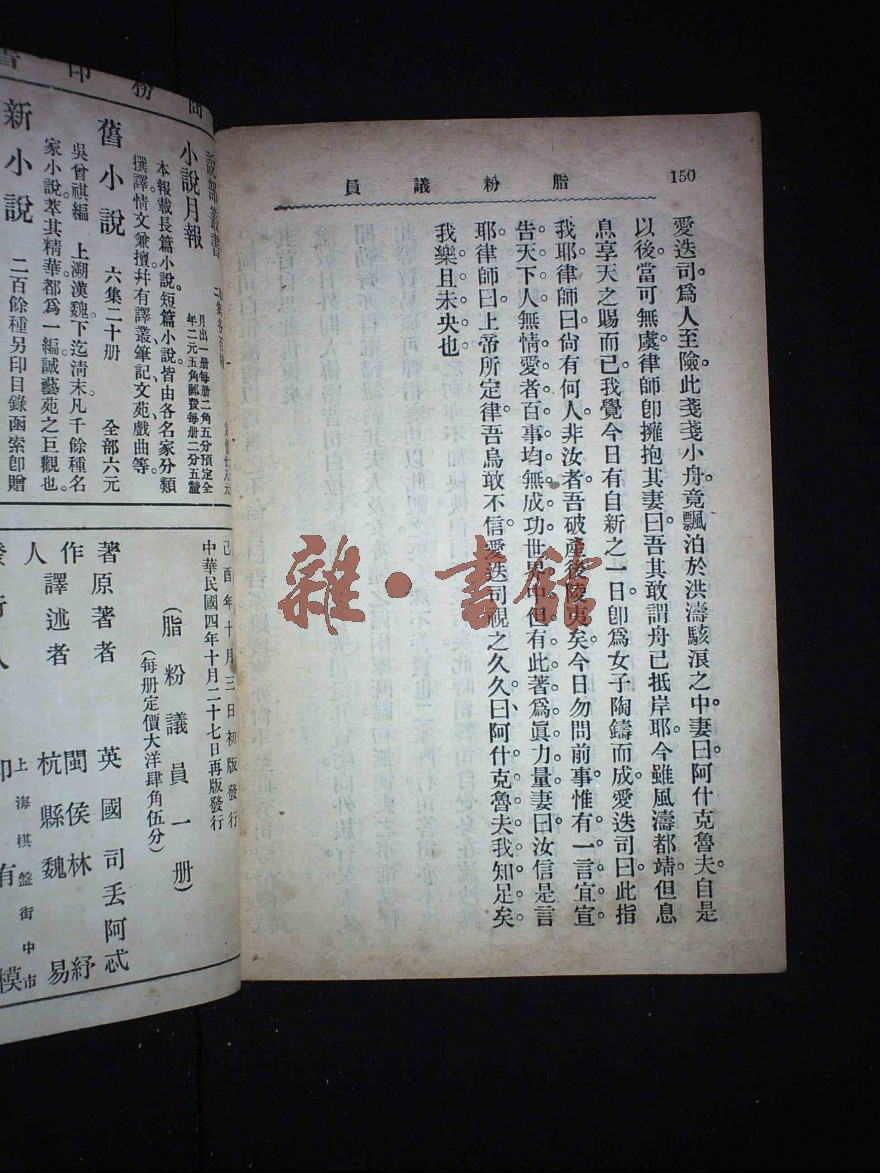 150
脂粉議員
愛迭司。爲人至險。此戔戔小舟。竟飄泊於洪濤駭浪之中。妻曰。阿什克魯夫。自是
以後當可無虞。律師卽擁抱其妻曰。吾其敢謂舟已抵岸耶。今雖風濤都靖。但息
息享天之賜而已。我覺今日有自新之一日。卽爲女子陶鑄而成。愛迭司曰。此指
我耶。律師曰。尙有何人非汝者。吾破產後陵夷矣。今日勿問前事。惟有一言宜宣
告天下。人無情愛者。百事均無成功。世界中但有此著爲眞力量。妻曰。汝信是言
耶。律師曰。上帝所定律。吾烏敢不信。愛迭司視之久久。曰。阿什克魯夫。我知足矣。
我樂且未央也
雜·書館
商務印書
說部叢書
小說月報
月出一册每册二角五分預定全
年二元五角郵費每册二分五釐
本報載長篇小說。短篇小說。皆由各名家分類
撰譯。情文兼擅。幷有譯叢、筆記、文苑、戲曲等。
舊小說 六集二十册 全部六元
吳曾祺編 上溯漢魏。下迄清末。凡千餘種。名
家小說。萃其精華。都爲一編。誠藝苑之巨觀也。
新小說 二百餘種另印目錄函索卽贈
己酉年十月三日初版發行
中華民國四年十月二十七日再版發行
(脂粉議員一册)
(每册定價大洋肆角伍分)
原著者 英國司丟阿忒
著作人
譯述者 閩侯林紓
杭縣魏易
發行人 印有模
上海棋盤街中市